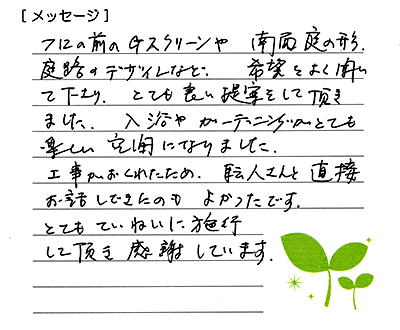 [メッセージ]
フロの前のスクリーンや 南側 庭の形、
庭路のデザインなど、希望をよく聞い
て下さり、とても良い提案をして頂き
ました。入浴やガーデニングがとても
楽しい空間になりました。
工事がおくれたため、職人さんと直接
お話しできたのも よかったです。
とてもていねいに施行
して頂き感謝しています。